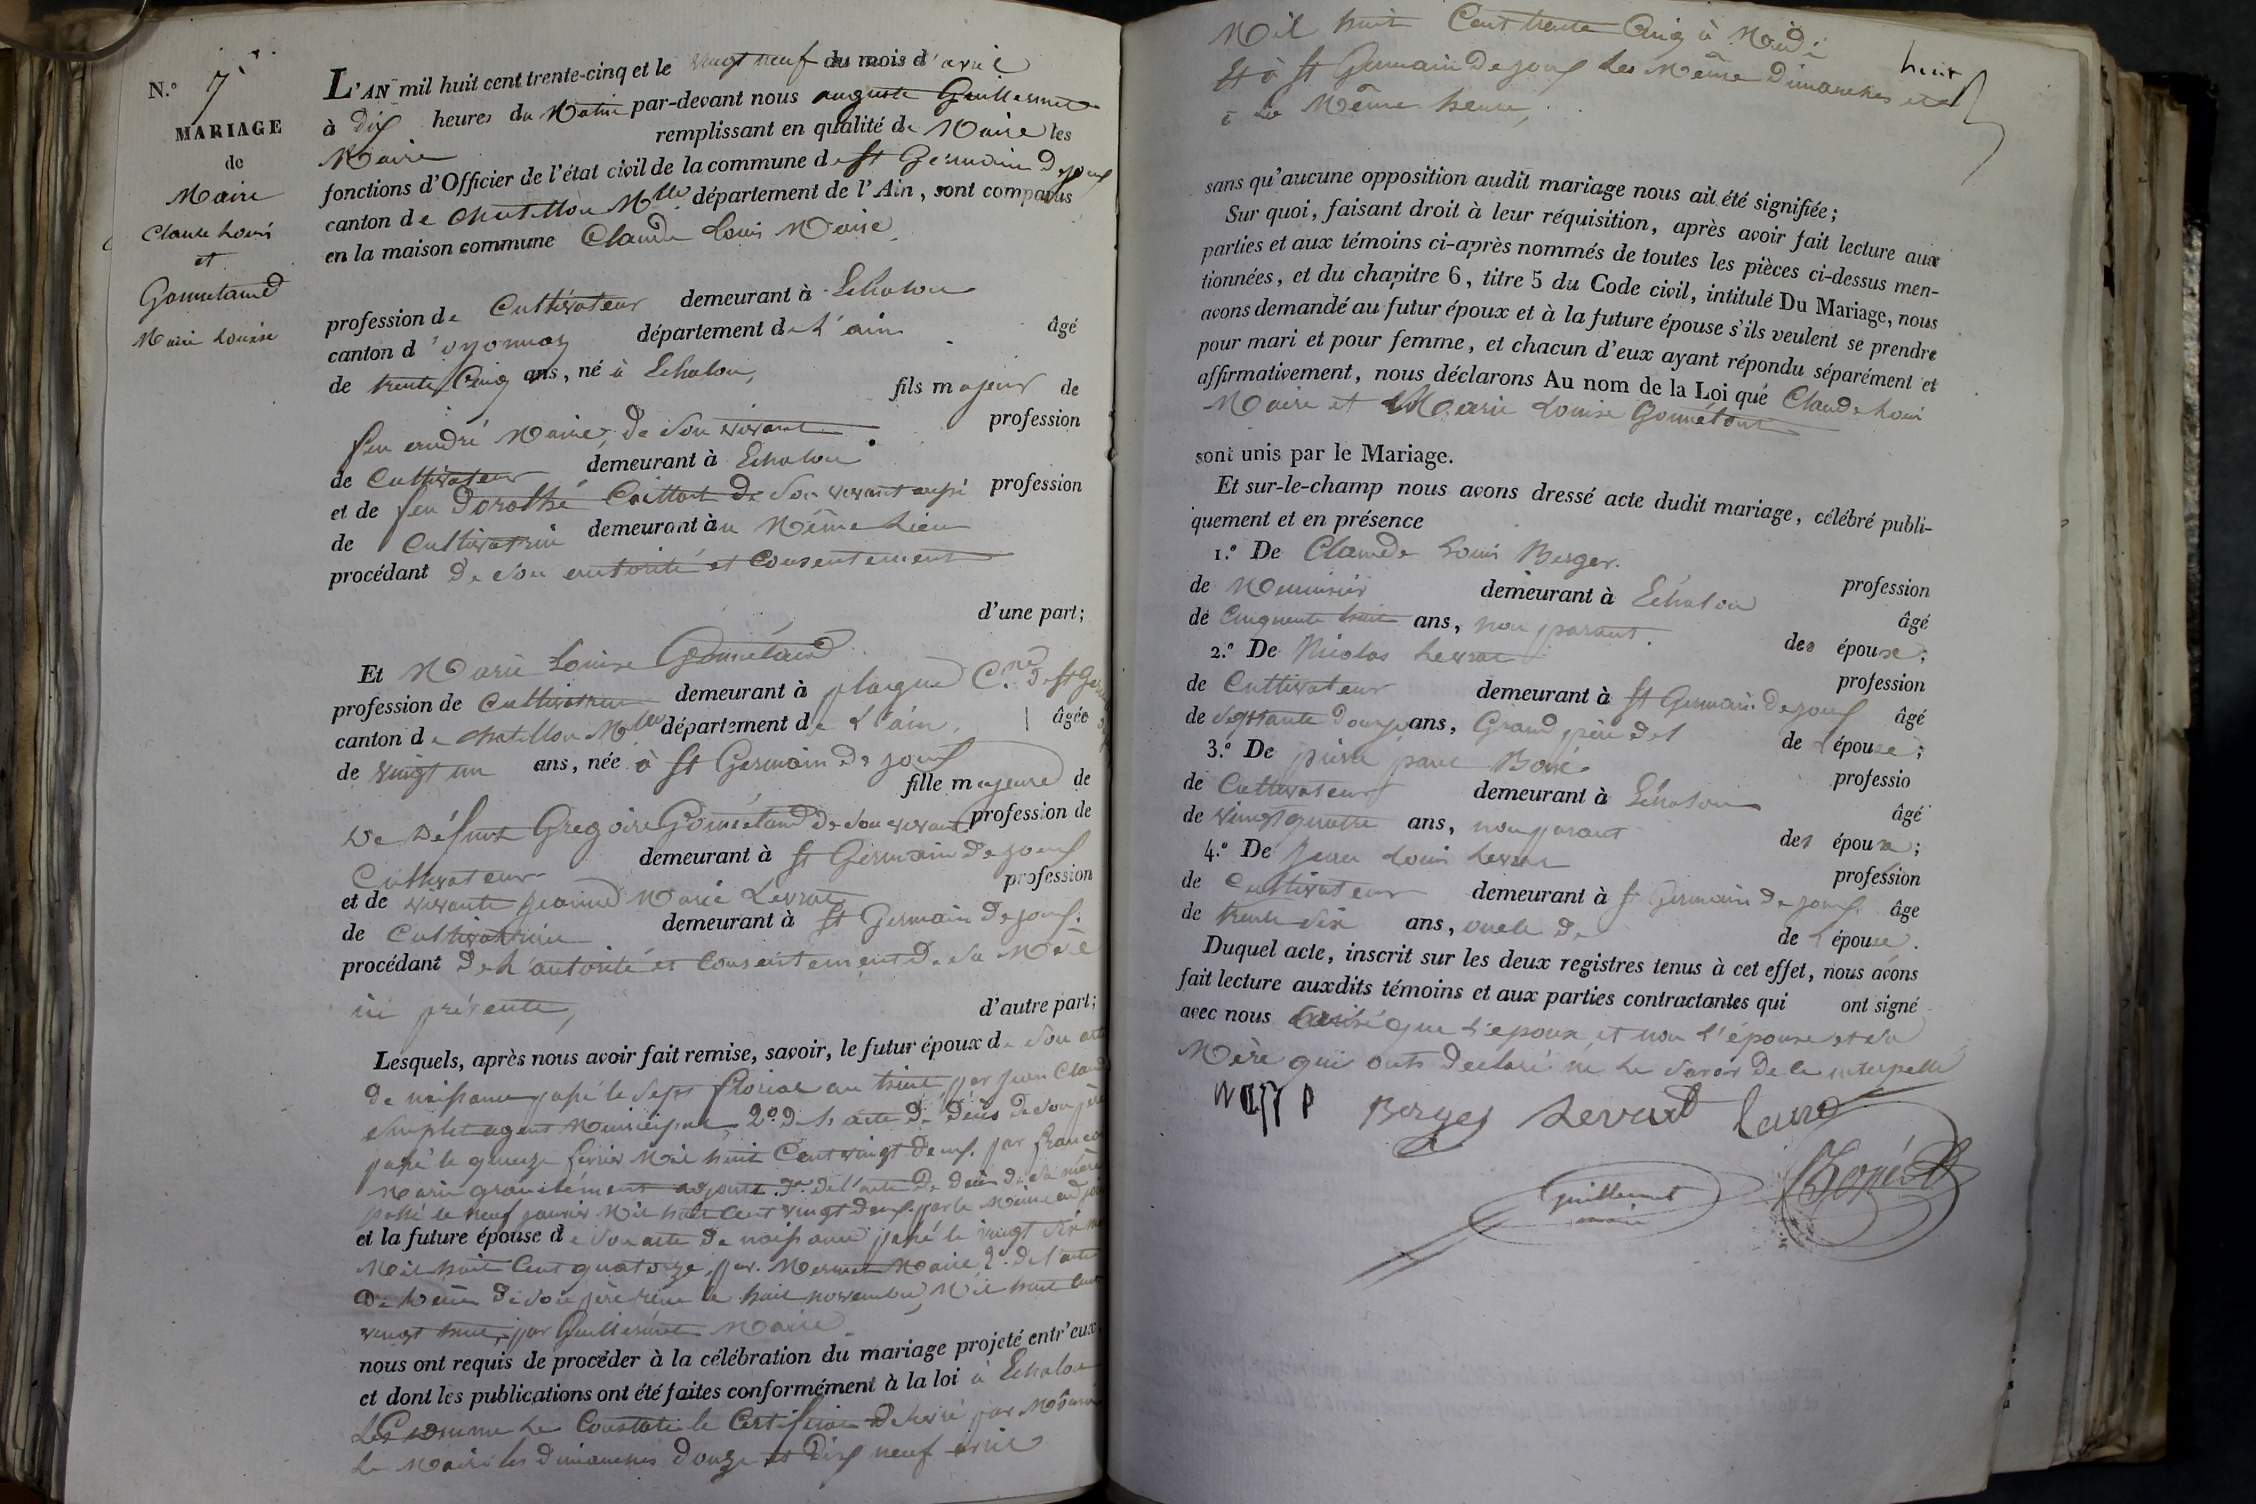 N.o 7
MARIAGE
de
Maire
Claude Louis
et
Gonnetand
Marie Louise
L'AN mil huit cent trente-cinq et le vingt neuf du mois d'avril
à dix heures du Matin par-devant nous auguste Guillermet
Maire remplissant en qualité de Maire les
fonctions d'Officier de l'état civil de la commune de St Germain de joux
canton de Chatillon Mlle département de l'Ain, sont comparus
en la maison commune Claude Louis Maire
profession de Cultivateur demeurant à Echalon
canton d'oyonnax département de L'ain âgé
de trente Cinq ans, né à Echalon, fils majeur de
feu andré Maire, de son vivant profession
de Cultivateur demeurant à Echalon
et de feu Dorothé de son vivant aussi profession
de Cultivatrice demeurant au Même Lieu
procédant de son autorité et Consentement
d'une part;
Et Marie Louise Gonnétand
profession de Cultivatrice demeurant à plagne Cne de St Ger
canton de chatillon Mlle département de L'ain, âgée
de vingt un ans, née à St Germain de joux
fille majeure de
De Défunt Gregoire Gonnétand de son vivant profession de
Cultivateur demeurant à St Germain de joux
et de vivante jeanne Marie Levrat profession
de Cultivatrice demeurant à St Germain de joux.
procédant de L'autorité et Consentement de sa Mère
ici présente, d'autre part;
Lesquels, après nous avoir fait remise, savoir, le futur époux de son acte
de naissance passé le sept floréal an huit par jean Claude
agent Municipal, 2.o de L'acte de Décès de son père
passé le quinze fevrier Mil huit Cent vingt deux, par françois
Marie adjoint. 3.o de l'acte de Décès de sa mère
passé le neuf janvier Mil huit Cent vingt deux par le Même adjoint
et la future épouse de son acte de naissance passé le vingt
Mil huit Cent quatorze, par Mermet Maire 2.o de l'acte
de Décès de son père le huit novembre Mil huit Cent
vingt huit, par Guillermet Maire
nous ont requis de procéder à la célébration du mariage projeté entr'eux
et dont les publications ont été faites conformément à la loi à Echalon
Comme Le Constate le Certificat Délivré par Monsieur
Le Maire les Dimanches Douze et Dix neuf avril
Mil huit Cent trente Cinq à Midi
Et à St Germain de joux Les Même Dimanches et
à La Même heure,
huit
sans qu'aucune opposition audit mariage nous ait été signifiée;
Sur quoi, faisant droit à leur réquisition, après avoir fait lecture aux
parties et aux témoins ci-après nommés de toutes les pièces ci-dessus men-
tionnées, et du chapitre 6, titre 5 du Code civil, intitulé Du Mariage, nous
avons demandé au futur époux et à la future épouse s'ils veulent se prendre
pour mari et pour femme, et chacun d'eux ayant répondu séparément et
affirmativement, nous déclarons Au nom de la Loi que Claude Louis
Maire et Marie Louise Gonnétant
sont unis par le Mariage.
Et sur-le-champ nous avons dressé acte dudit mariage, célébré publi-
quement et en présence
1.o De Claude Louis Berger. profession
de Menuisier demeurant à Echalon âgé
de Cinquente huit ans, non parant. des époux;
2.o De Nicolas Levrat profession
de Cultivateur demeurant à St Germain de joux âgé
de septante Douze ans, Grand père de l de l'épouse;
3.o De professio
de Cultivateur demeurant à Echalon âgé
de vingt quatre ans, non parant des époux;
4.o De Jean Louis Levrat profession
de Cultivateur demeurant à St Germain de joux. âge
de trente six ans, oncle de de l'épouse.
Duquel acte, inscrit sur les deux registres tenus à cet effet, nous avons
fait lecture auxdits témoins et aux parties contractantes qui ont signé
avec nous que L'époux et non L'épouse et sa
Mère qui ont Déclaré ne Le Savoir de ce interpellé
Berger Levrat
Guillermet
maire